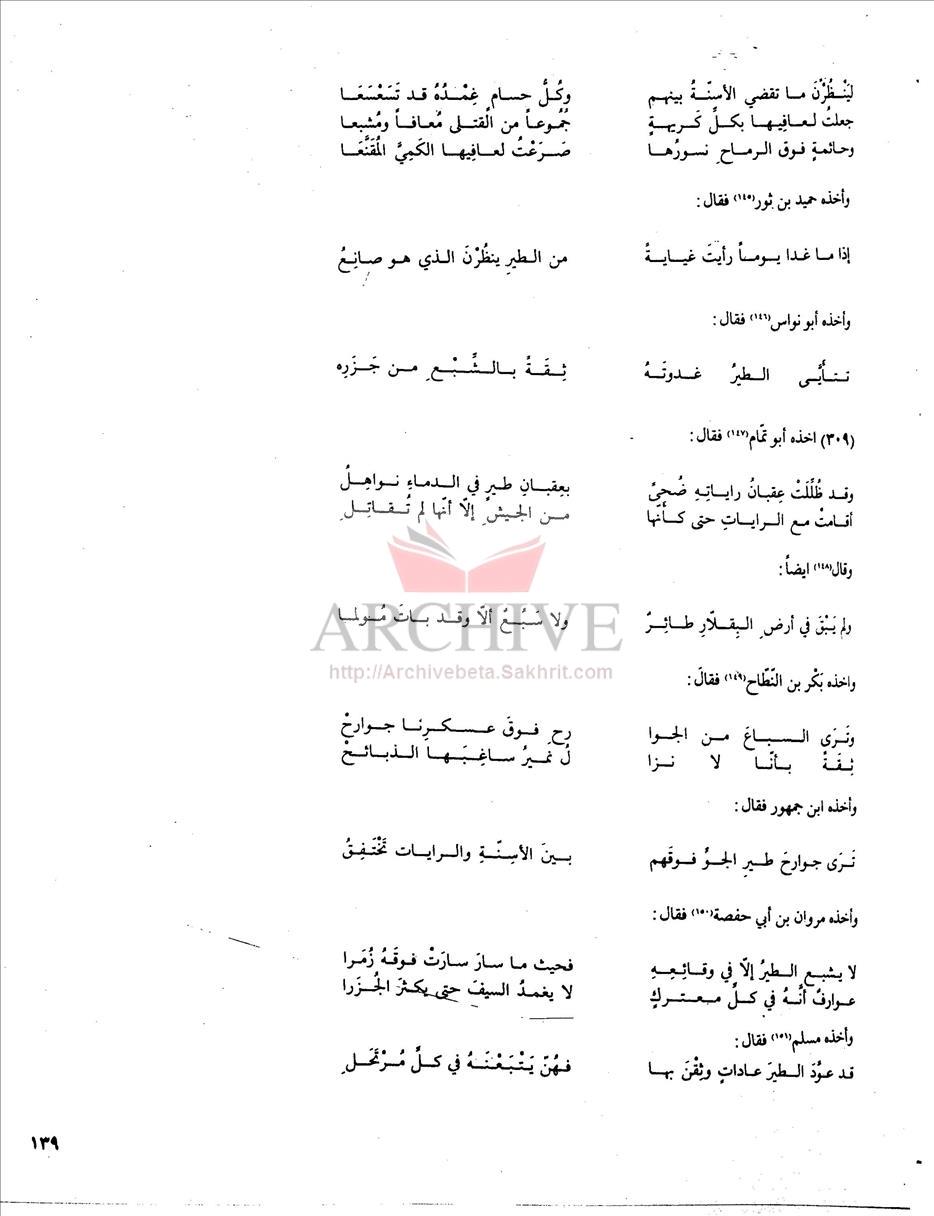 لِيَنْظُرْنَ ما تقضي الأسنّةُ بينهم وكُلُّ حسامٍ غِمْدُهُ قد تَسَعْسَعَا
جعلتُ لعافِيها بكلِّ كَريهةٍ جُمُوعاً من القتلى مُعافاً ومُشبعا
وحائمةٍ فوق الرماحِ نسورُها صَرَعْتُ لعافيها الكَمِيَّ المُقَنَّعَا
وأخذه حميد بن ثور(١٤٥) فقال :
إذا ما غدا يوماً رأيتَ غيايةً من الطيرِ ينظُرْنَ الذي هو صانِعُ
وأخذه أبو نواس(١٤٦) فقال :
تتأيَّى الطيرُ غدوتَهُ ثِقَةً بالشِّبْعِ من جَزَرِه
(٣٠٩) اخذه أبو تمّام(١٤٧) فقال :
وقد ظُلِّلَتْ عِقبانُ راياتِه ضُحىً بعِقبانِ طيرٍ في الدماءِ نواهِلُ
أقامتْ مع الراياتِ حتى كأنّها من الجيشِ إلاّ أنّها لم تُقاتِلِ
وقال(١٤٨) ايضاً :
ولم يَبْقَ في أرضِ البِقلّارِ طائِرٌ ولا سَبُعٌ ألاّ وقد باتَ مُولما
واخذه بَكْر بن النّطّاح(١٤٩) فقالَ :
ونَرَى السباعَ من الجوا رحِ فوقَ عسكرِنا جوارحْ
ثِقَةً بأنّا لا نزا لُ نميرُ ساغِبَها الذبائحْ
وأخذه ابن جمهور فقال :
تَرَى جوارحَ طيرِ الجوِّ فوقَهم بينَ الأسِنّةِ والرايات تَخْتَفِقُ
وأخذه مروان بن أبي حفصة(١٥٠) فقال :
لا يشبع الطيرُ إلاّ في وقائِعِهِ فحيث ما سارَ سارَتْ فوقَهُ زُمَرا
عوارفُ أنَّهُ في كلِّ معتركٍ لا يغمدُ السيفَ حتى يكثرَ الجُزَرا
وأخذه مسلم(١٥١) فقال :
قد عوّدَ الطيرَ عاداتٍ وثِقْنَ بها فهُنّ يَتْبَعْنَهُ في كلِّ مُرْتَحَلِ
١٣٩
ARCHIVE
http://Archivebeta.Sakhrit.com